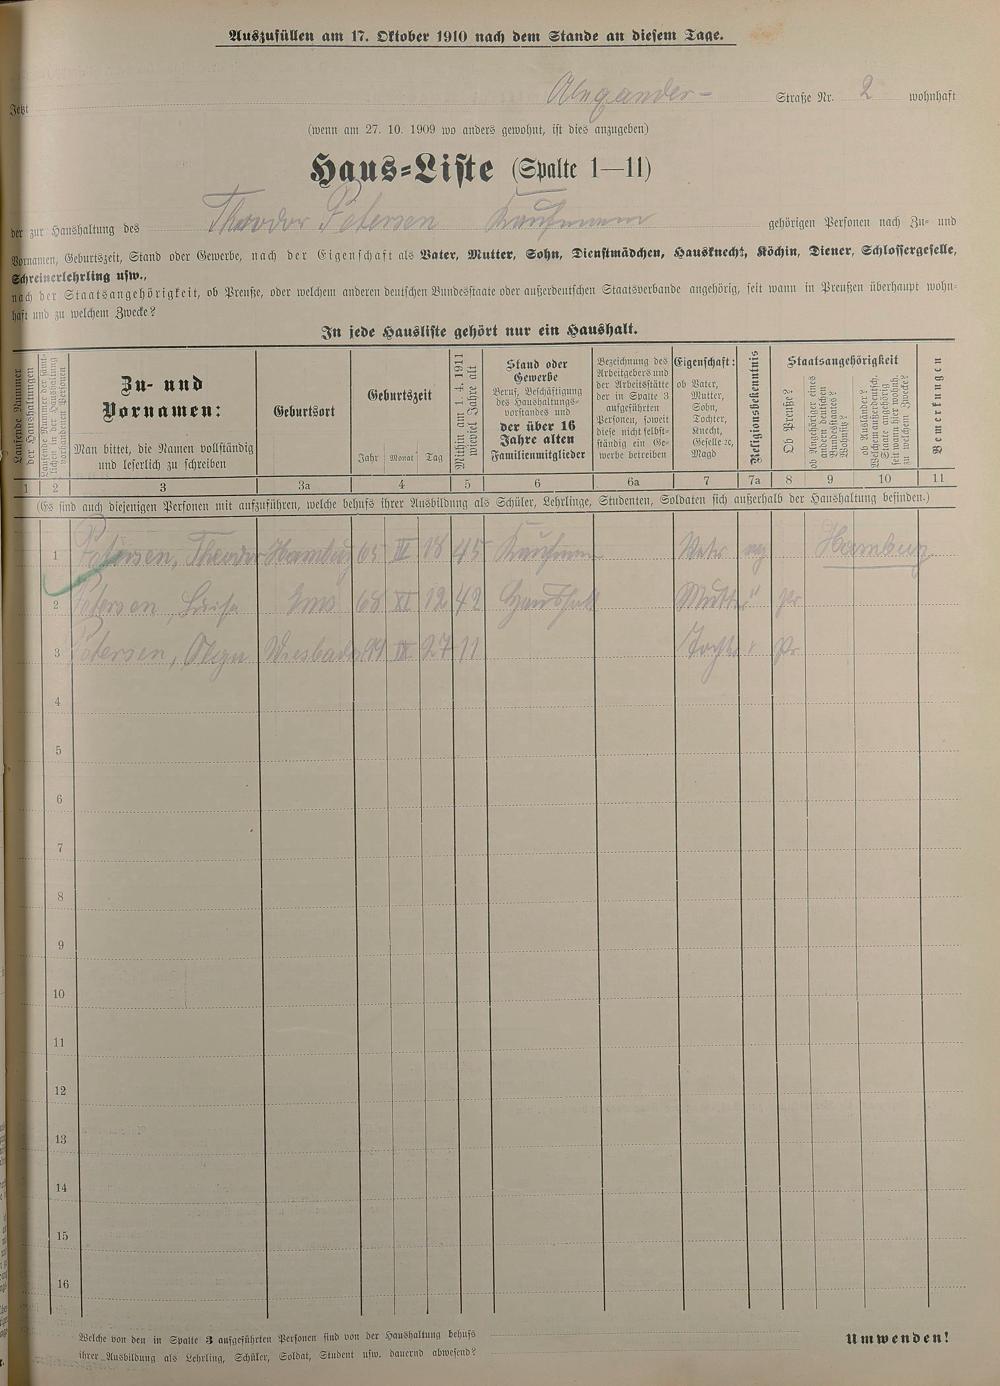 Auszufüllen am 17. Oktober 1910 nach dem Stande an diesem Tage.
Jetzt Alexander- Straße Nr. 2 wohnhaft
(wenn am 27. 10. 1909 wo anders gewohnt, ist dies anzugeben)
Haus-Liste (Spalte 1—11)
der zur Haushaltung des Theodor Petersen Kaufmann gehörigen Personen nach Zu- und
Vornamen, Geburtszeit, Stand oder Gewerbe, nach der Eigenschaft als Vater, Mutter, Sohn, Dienstmädchen, Hausknecht, Köchin, Diener, Schlossergeselle,
Schreinerlehrling usw.,
nach der Staatsangehörigkeit, ob Preuße, oder welchem anderen deutschen Bundesstaate oder außerdeutschen Staatsverbande angehörig, seit wann in Preußen überhaupt wohn-
haft und zu welchem Zwecke?
In jede Hausliste gehört nur ein Haushalt.
Laufende Nummer der Haushaltungen
Laufende Nummer der sämt-
lichen in der Haushaltung
vorhandenen Personen
Zu- und
Vornamen:
Man bittet, die Namen vollständig
und leserlich zu schreiben
Geburtsort
Geburtszeit
Jahr Monat Tag
Mithin am 1. 4. 1911
wieviel Jahre alt
Stand oder
Gewerbe
Beruf, Beschäftigung
des Haushaltungs-
vorstandes und
der über 16
Jahre alten
Familienmitglieder
Bezeichnung des
Arbeitgebers und
der Arbeitsstätte
der in Spalte 3
aufgeführten
Personen, soweit
diese nicht selbst-
ständig ein Ge-
werbe betreiben
Eigenschaft:
ob Vater,
Mutter,
Sohn,
Tochter,
Knecht,
Geselle ec,
Magd
Religionsbekenntnis
Staatsangehörigkeit
Ob Preuße?
ob Angehöriger eines
andern deutschen
Bundesstaates?
Wohnsitz?
ob Ausländer?
Welchem außerdeutsch.
Staate angehörig
seit wann hier wohnh.
zu welchem Zwecke?
Bemerkungen
1 2 3 3a 4 5 6 6a 7 7a 8 9 10 11
(Es sind auch diejenigen Personen mit aufzuführen, welche behufs ihrer Ausbildung als Schüler, Lehrlinge, Studenten, Soldaten sich außerhalb der Haushaltung befinden.)
1 Petersen, Theodor Hamburg 65 18 45 Kaufmann Vater Hamburg
2 Petersen, Luise Ems 68 XI 12 42 Haushalt Mutter " Pr
3 Petersen, Olga Wiesbaden 99 27 11 Tochter " Pr
4
5
6
7
8
9
10
11
12
13
14
15
16
Welche von den in Spalte 3 aufgeführten Personen sind von der Haushaltung behufs
ihrer Ausbildung als Lehrling, Schüler, Soldat, Student usw. dauernd abwesend?
Umwenden!